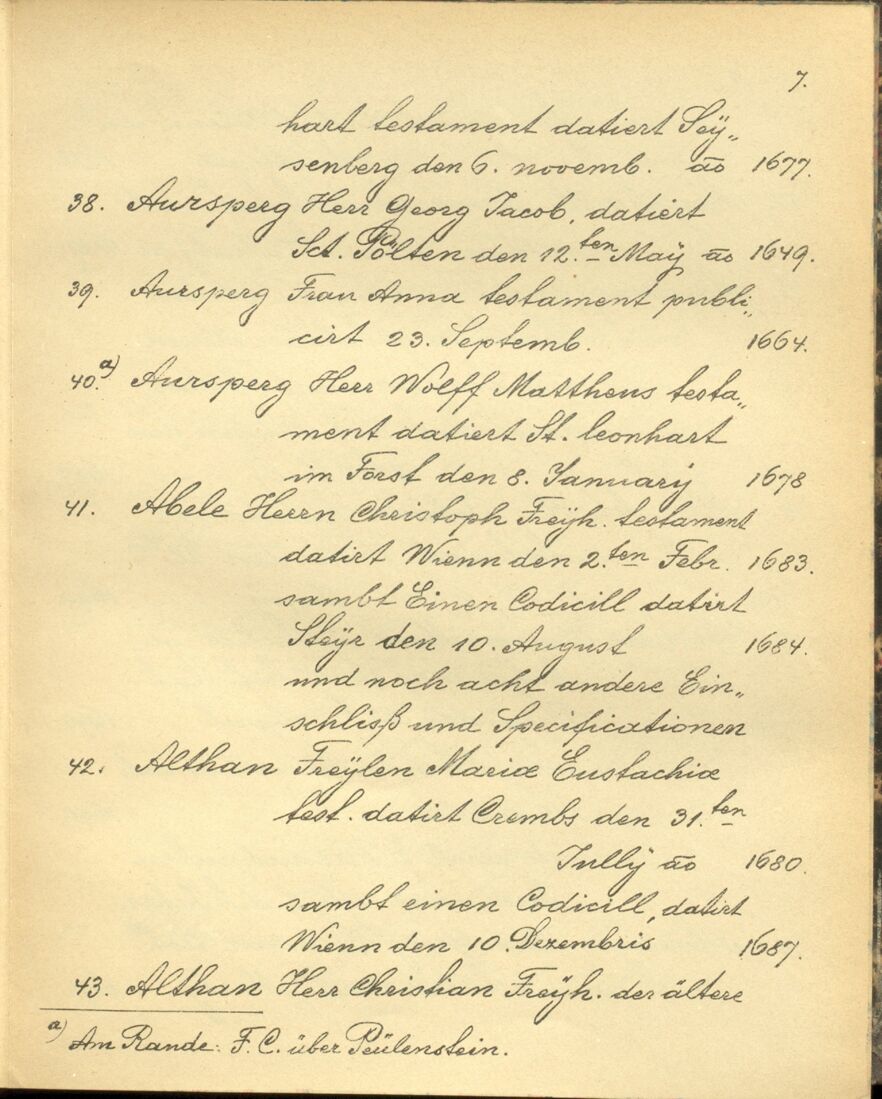 7.
hart testament datiert Seÿ„
senberg den 6. novemb. āo 1677.
38. Aursperg Herr Georg Jacob, datiert
Sct. Pölten den 12.ten Maÿ āo 1649.
39. Aursperg Frau Anna testament publi„
cirt 23. Septemb. 1664.
40.a) Aursperg Herr Wolff Mattheus testa„
ment datiert St. leonhart
im Forst den 8. Januarÿ 1678
41. Abele Herrn Christoph Freÿh. testament
datirt Wienn den 2.ten Febr. 1683.
sambt Einen Codicill datirt
Steÿr den 10. August 1684.
und noch acht andere Ein„
schliß und Specificationen
42. Althan Freÿlen Mariæ Eustachiæ
test. datirt Crembs den 31.ten
Jullÿ āo 1680.
sambt einen Codicill, datirt
Wienn den 10. Dezembris 1687.
43. Althan Herr Christian Freÿh. der ältere
a) Am Rande: F. C. über Peülenstein.